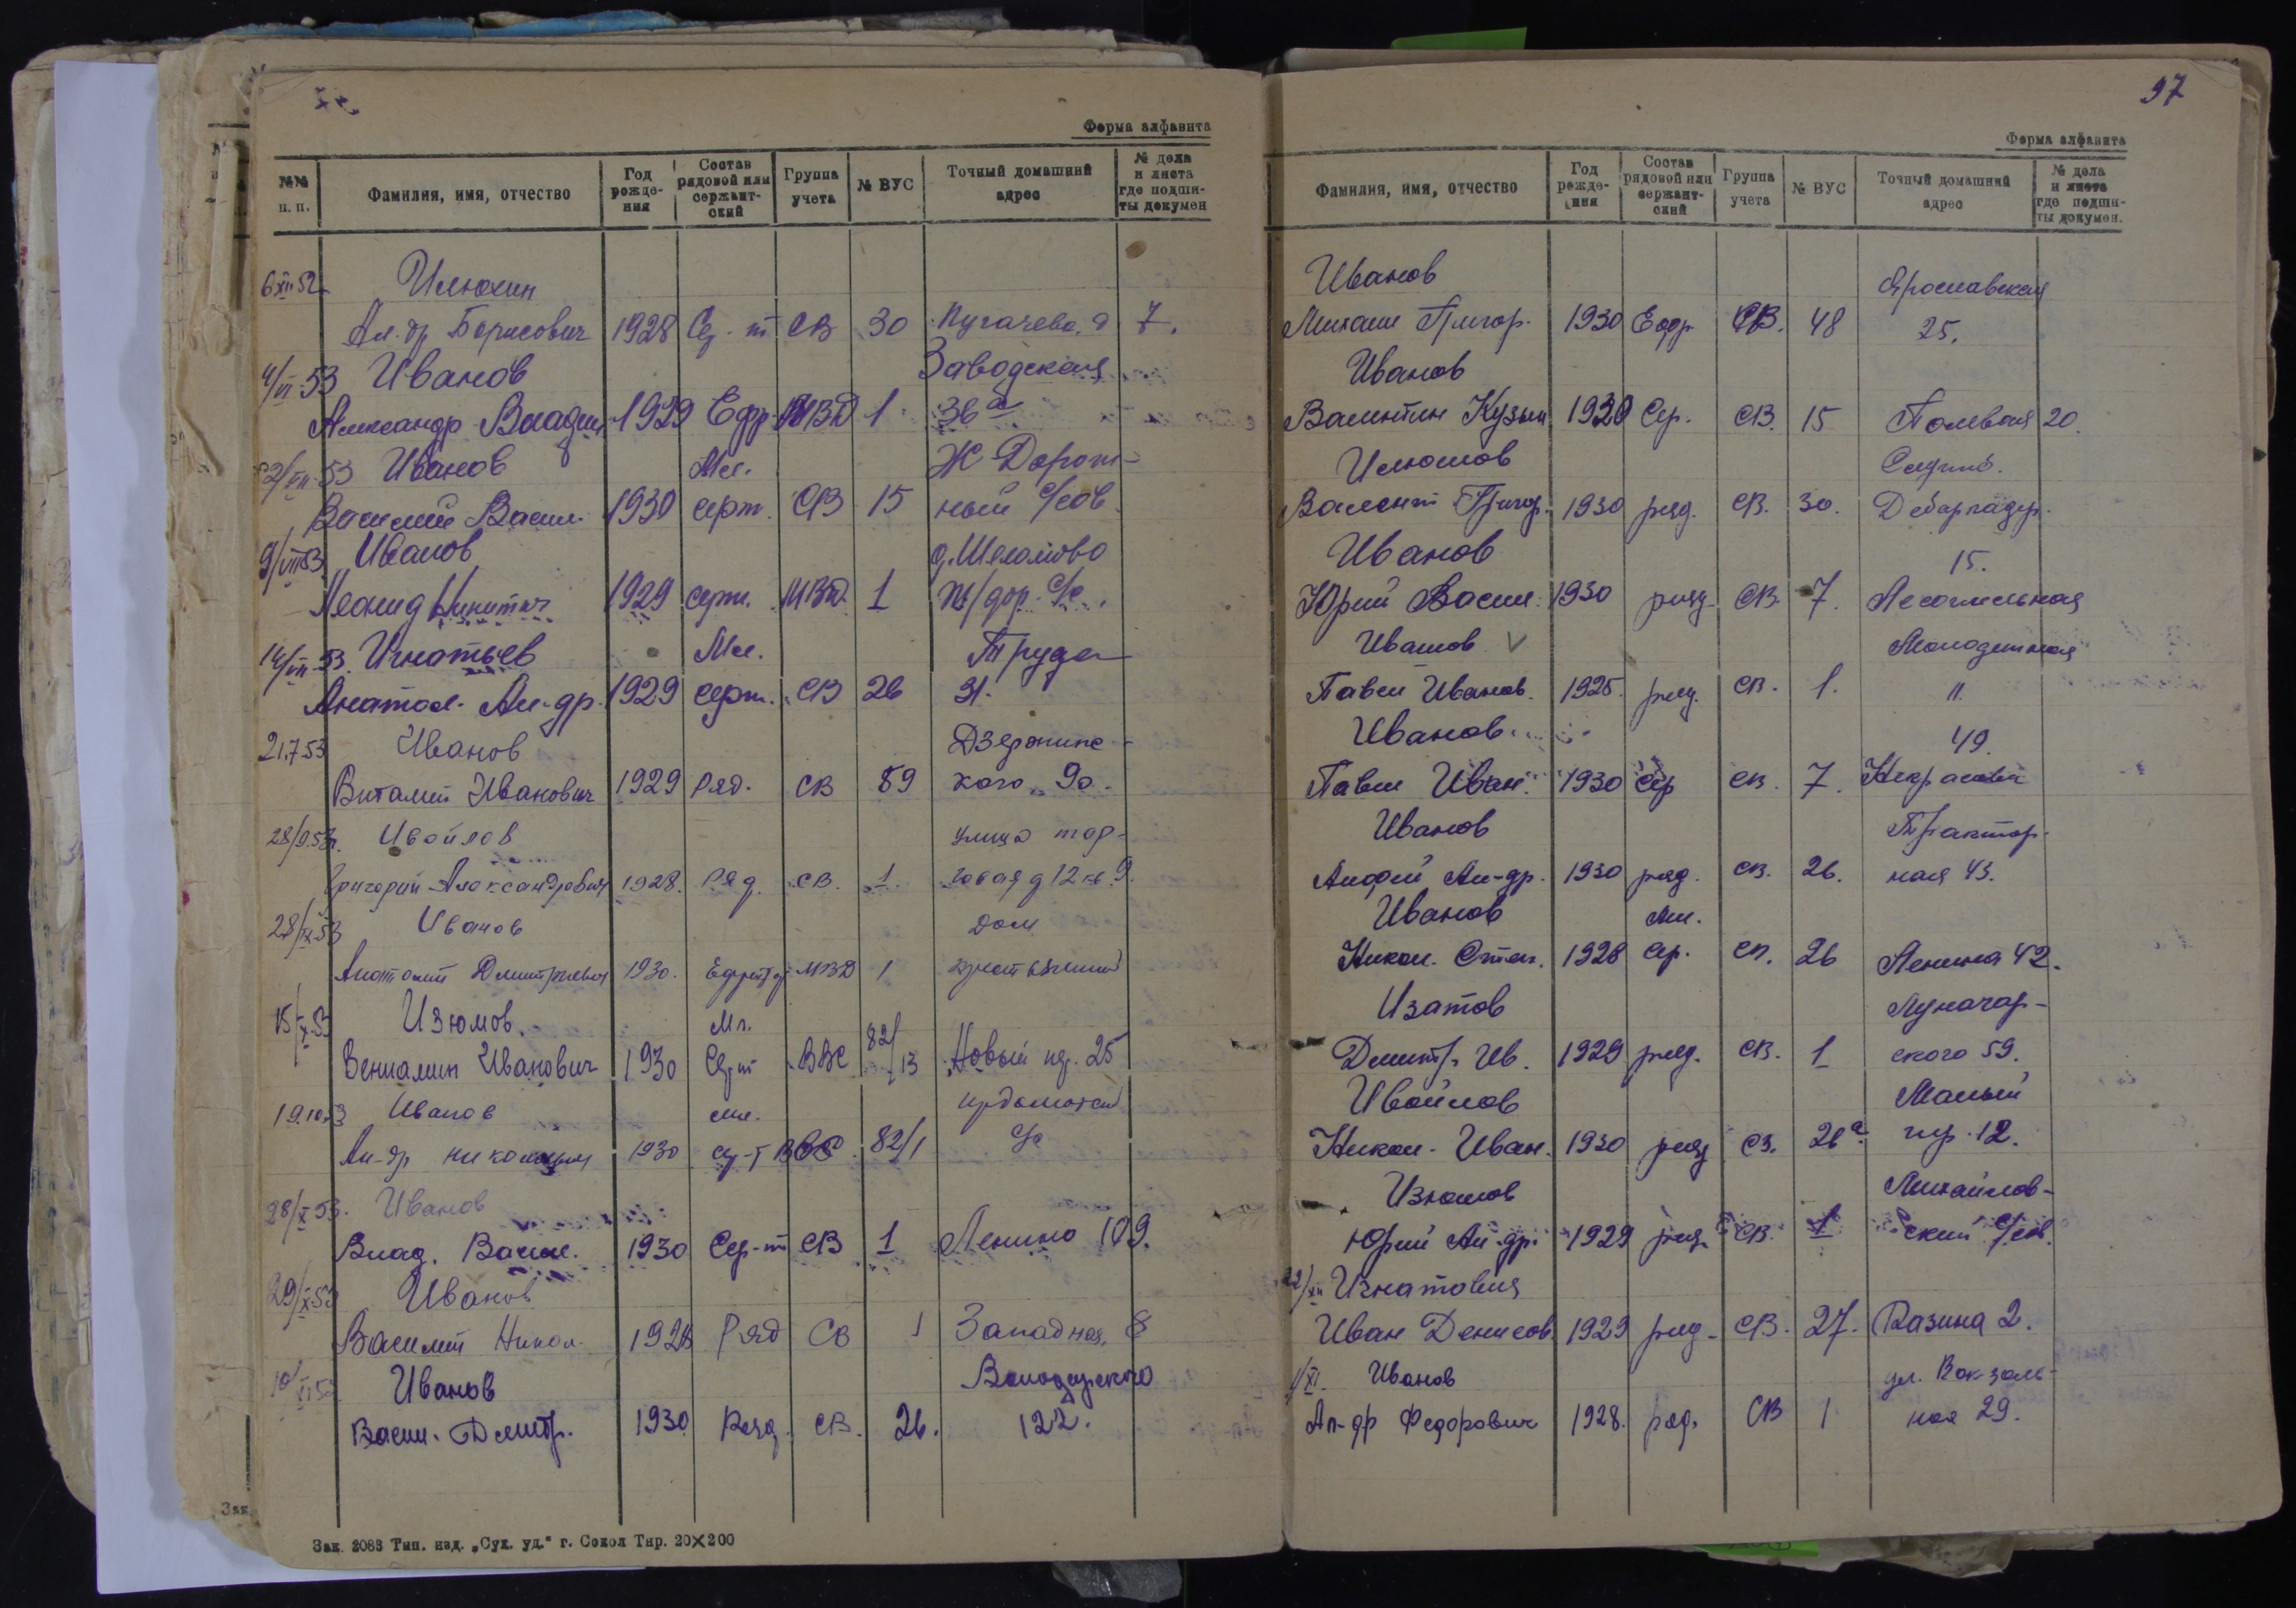 Форма алфавита
№№ п. п.
Фамилия, имя, отчество
Год рожде-ния
Состав рядовой или сержант-ский
Группа учета
№ ВУС
Точный домашний адрес
№ дела и листа где подши-ты докумен
6 XII 52 Илюхин
Ал-др Борисович 1928 Сер-т СВ 30 Пугачева, 9 7.
Иванов Заводская
Александр Влади 1929 Ефр МВД 1 36а
Иванов Мл. Ж Дорож-
Василий Васил. 1930 серж. СВ 15 ный с/сов.
9/VIII 53 Иванов д. Шеломово
Леонид Никитич 1929 серж. МВД 1 ж/дор. с/с.
14/VIII 53. Игнатьев Мл. Труда
Анатол. Ал-др. 1929 серж. СВ 26 31.
21.7.53 Иванов Дзержинс-
Виталий Иванович 1929 Ряд. СВ 89 кого 90.
28/9.53г. Ивойлов улица тор-
Григорий Александрович 1928. Ряд. СВ. 1. говая д 12 кв. 9.
28/IX 53 Иванов Дом
Анатолий Дмитриевич 1930. МВД 1
15/X 53 Изюмов. Мл.
Вениамин Иванович 1930 Сер-т ВВС 82/13 Новый пер. 25
19.10.53 Иванов мл.
Ал-др Николаевич 1930 сер-т ВВС 82/1 с/с
28/X 53. Иванов
Влад. Васил. 1930 Сер-т СВ 1 Ленина 109.
29/X 53 Иванов
Василий Никол. 1928 Ряд СВ 1 Западная, 8
10/XI 53 Иванов Володарского
Васил. Дмитр. 1930 Ряд. СВ. 26. 122.
Зак. 2083 Тип. изд. „Сух. уд.“ г. Сокол Тир. 20×200
97
Форма алфавита
Фамилия, имя, отчество
Год рожде-ния
Состав рядовой или сержант-ский
Группа учета
№ ВУС
Точный домашний адрес
№ дела и листа где подши-ты докумен.
Иванов Ярославская
Михаил Григор. 1930 Ефр. СВ. 48 25.
Иванов
Валентин Кузьм 1930 Сер. СВ. 15 Полевая 20.
Илюшов
Валент Григор. 1930 ряд. СВ. 30. Дебаркадер.
Иванов 15.
Юрий Васил. 1930 ряд. СВ. 7. Лесопильная
Ивашов Молодежная
Павел Иванов. 1925. ряд. СВ. 1. 11.
Иванов 49.
Павел Иван. 1930 Сер СВ. 7. Некрасова
Иванов Трактор-
Ал-др. 1930 ряд. СВ. 26. ная 43.
Иванов мл.
Никол. Степ. 1928 Сер. СВ. 26 Ленина 42.
Изатов Луначар-
Дмитр. Ив. 1929 ряд. СВ. 1 ского 59.
Ивойлов Малый
Никол. Иван. 1930 ряд СВ. 26а пер. 12.
Изюмов Михайлов-
Юрий Ал-др. 1929 ряд. СВ. 1 ский с/сов.
22/XII Игнатовия
Иван Денисов. 1929 ряд. СВ. 27. Разина 2.
1/XI. Иванов ул. Вокзаль-
Ал-др Федорович 1928. ряд. СВ 1 ная 29.